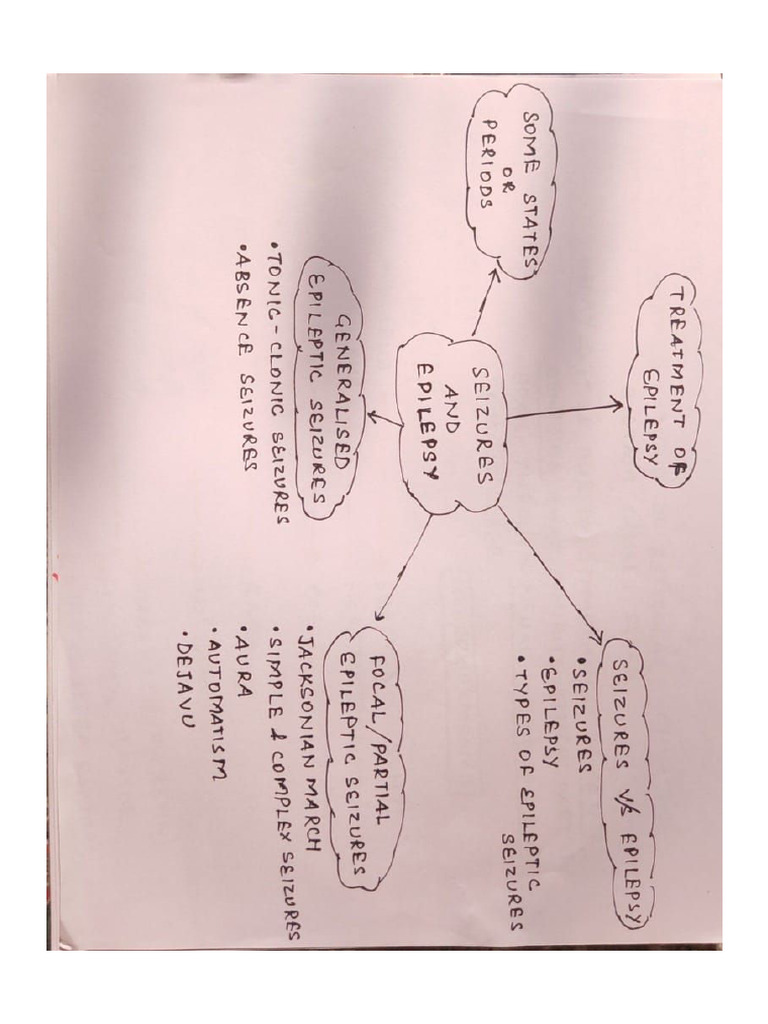 TREATMENT OF
EPILEPSY
SEIZURES v/s EPILEPSY
• SEIZURES
• EPILEPSY
• TYPES OF EPILEPTIC
SEIZURES
SOME STATES
OR
PERIODS
SEIZURES
AND
EPILEPSY
GENERALISED
EPILEPTIC SEIZURES
• TONIC-CLONIC SEIZURES
• ABSENCE SEIZURES
FOCAL/PARTIAL
EPILEPTIC SEIZURES
• JACKSONIAN MARCH
• SIMPLE & COMPLEX SEIZURES
• AURA
• AUTOMATISM
• DEJAVU